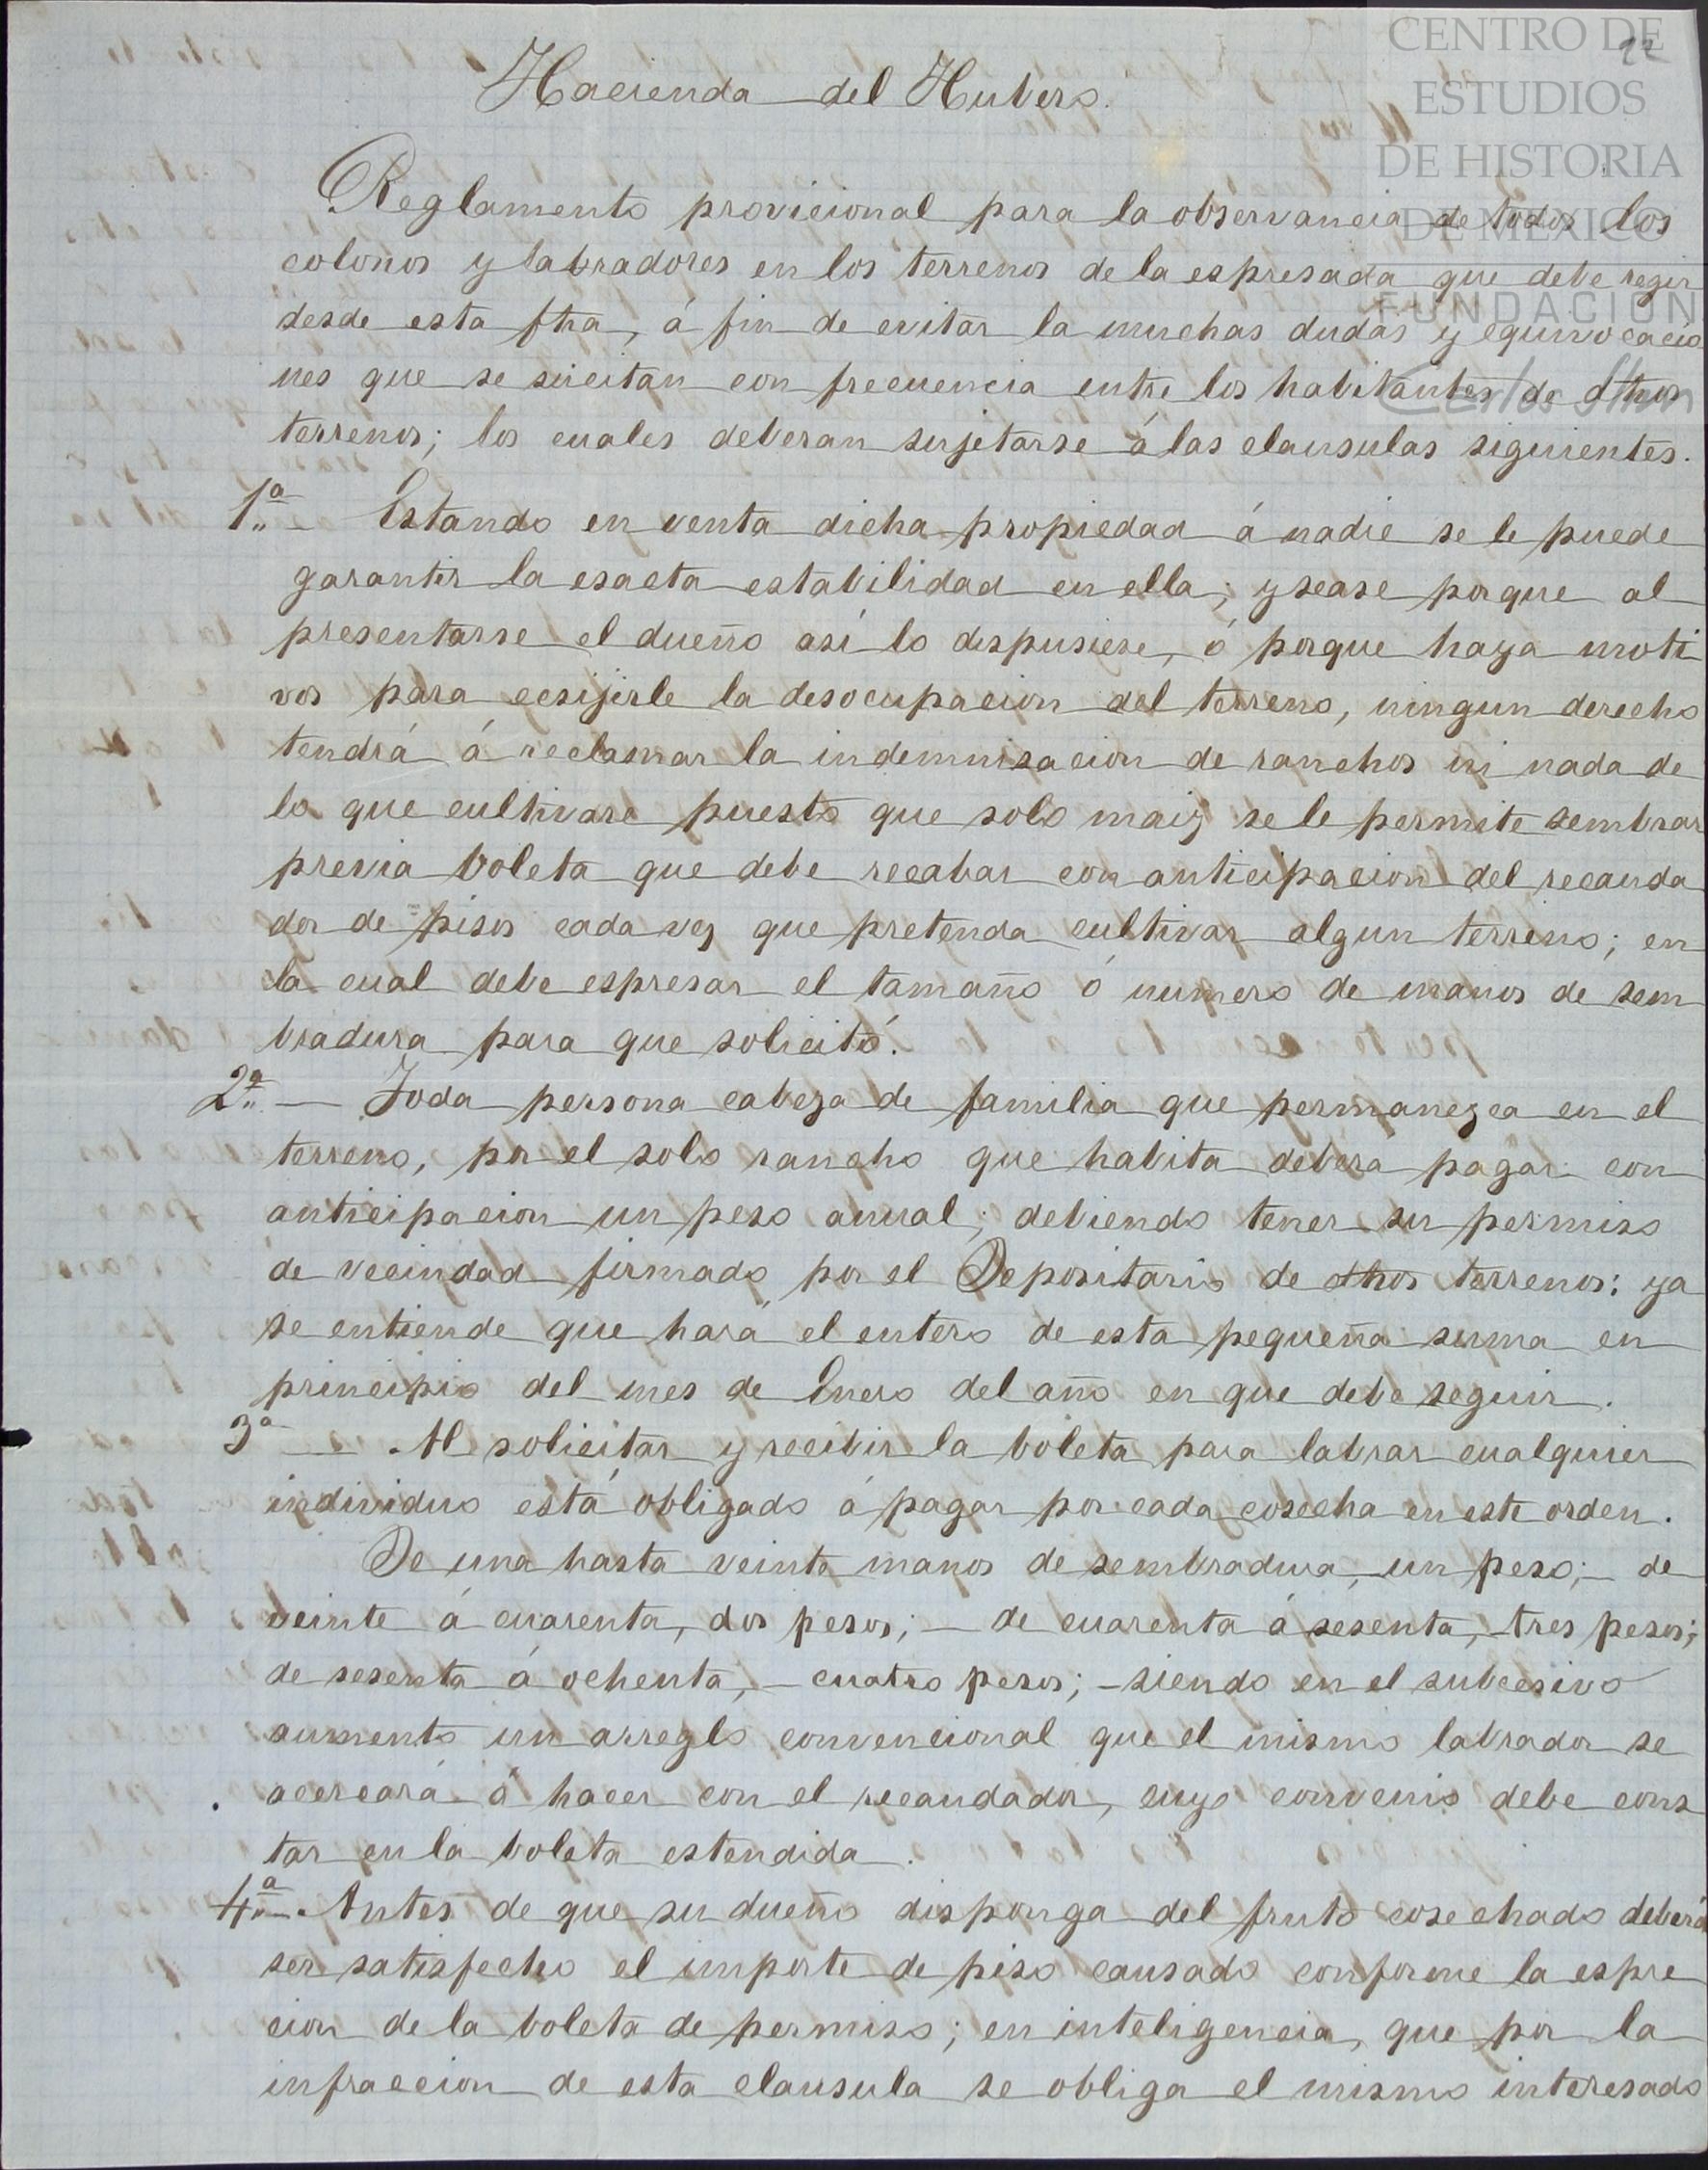 CENTRO DE
ESTUDIOS
DE HISTORIA
DE MEXICO
FUNDACIÓN
22
Hacienda del Hubero.
Reglamento provicional para la observancia de todos los
colonos y labradores en los terrenos de la espresada que debe regir
desde esta fha, á fin de evitar la muchas dudas y equivocacio
nes que se sucitan con frecuencia entre los habitantes de dhos
terrenos; los cuales deberan sujetarse á las clausulas siguientes.
1ª.. — Estando en venta dicha propiedad á nadie se le puede
garantir la esacta estabilidad en ella; y sease porque al
presentarse el dueño así lo dispusiese, ó porque haya moti
vos para ecsijirle la desocupacion del terreno, ningun derecho
tendrá á reclamar la indemnisacion de ranchos ni nada de
lo que cultivare puesto que solo maiz se le permite sembrar
previa boleta que debe recabar con anticipacion del recauda
dor de pisos cada vez que pretenda cultivar algun terreno; en
la cual debe espresar el tamaño ó numero de manos de sem
bradura para que solicitó.
2ª.. — Toda persona cabeza de familia que permanezca en el
terreno, por el solo rancho que habita deberá pagar con
anticipacion un peso anual; debiendo tener su permiso
de vecindad firmado por el Depositario de dhos terrenos: ya
se entiende que hará el entero de esta pequeña suma en
principio del mes de Enero del año en que debe seguir.
3ª — Al solicitar y recibir la boleta para labrar cualquier
individuo está obligado á pagar por cada cosecha en este orden.
De una hasta veinte manos de sembradura, un peso; — de
veinte á cuarenta, dos pesos; — de cuarenta á sesenta, — tres pesos;
de sesenta á ochenta, — cuatro pesos; — siendo en el subcesivo
aumento un arreglo convencional que el mismo labrador se
acercará á hacer con el recaudador, cuyo convenio debe cons
tar en la boleta estendida.
4ª.. — Antes de que su dueño disponga del fruto cosechado deberá
ser satisfecho el importe de piso causado conforme la espre
cion de la boleta de permiso; en inteligencia, que por la
infraccion de esta clausula se obliga el mismo interesado